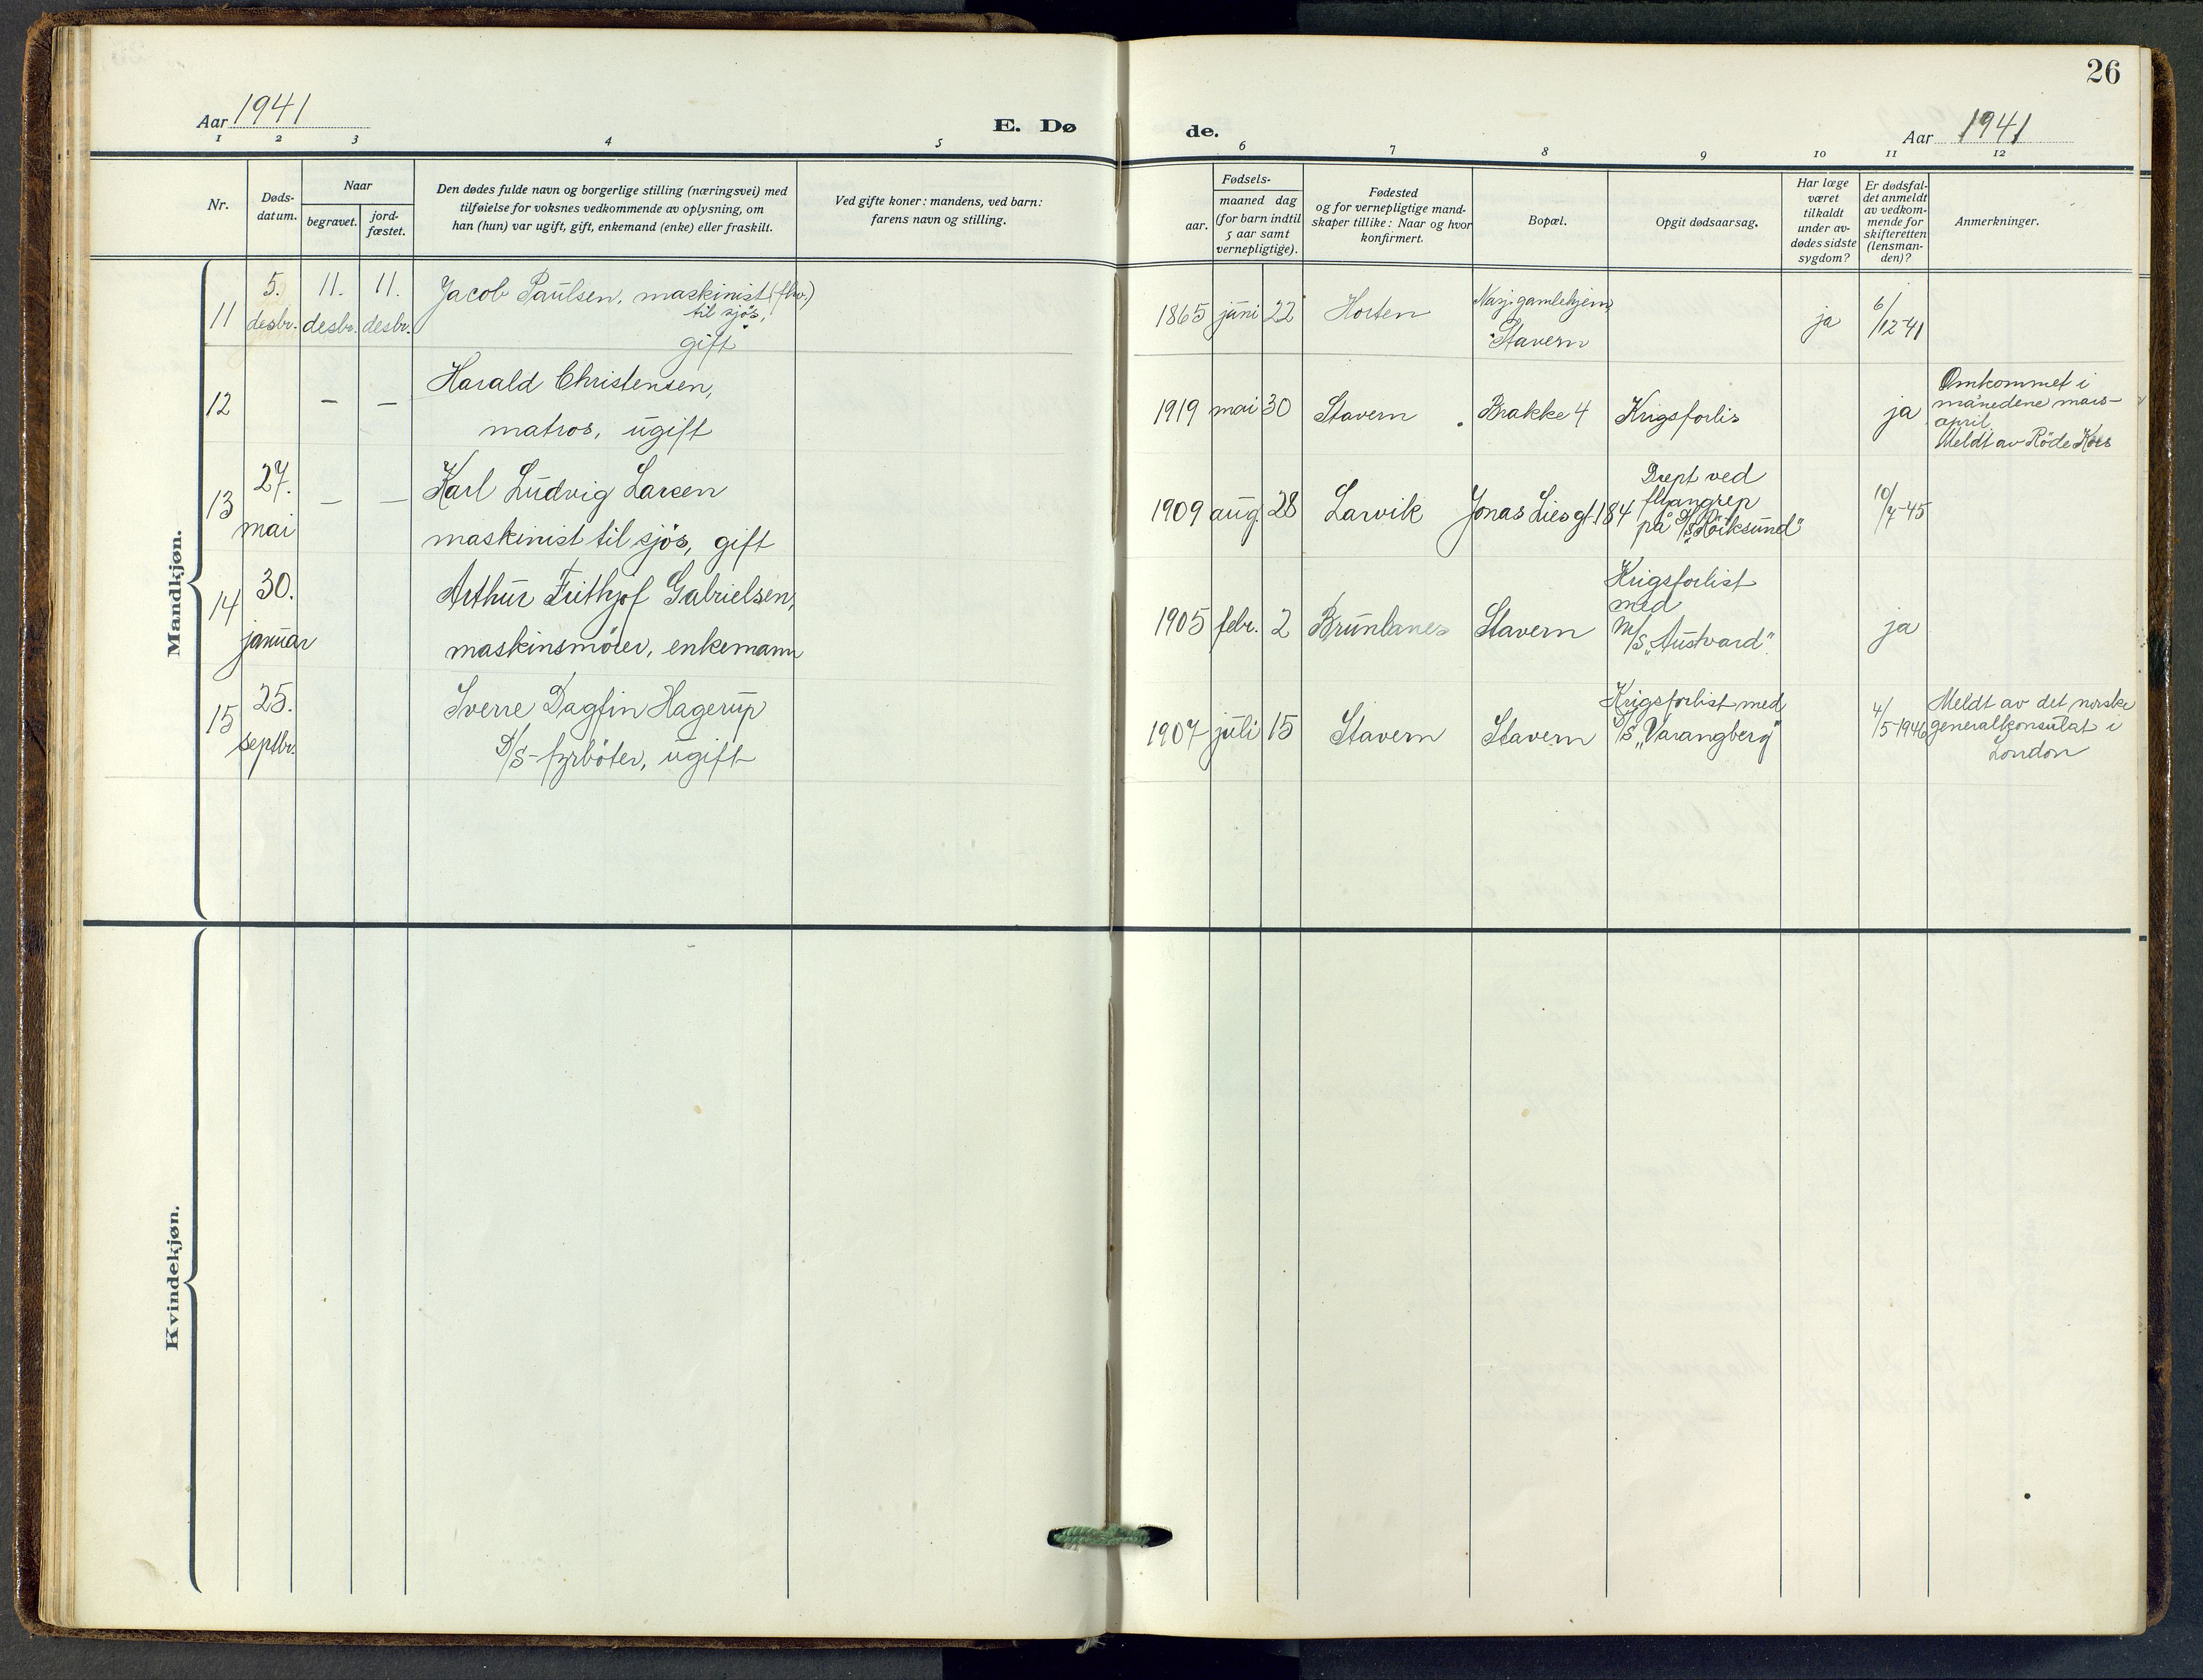 26
Aar 1941
E. Dø
de.
Aar 1941
1 2 3 4 5 6 7 8 9 10 11 12
Nr.
Døds-
datum.
Naar
begravet.
jord-
fæstet.
Den dødes fulde navn og borgerlige stilling (næringsvei) med
tilføielse for voksnes vedkommende av oplysning, om
han (hun) var ugift, gift, enkemand (enke) eller fraskilt.
Ved gifte koner: mandens, ved barn:
farens navn og stilling.
Fødsels-
aar.
maaned dag
(for barn indtil
5 aar samt
vernepligtige).
Fødested
og for vernepligtige mand-
skaper tillike: Naar og hvor
konfirmert.
Bopæl.
Opgit dødsaarsag.
Har læge
været
tilkaldt
under av-
dødes sidste
sygdom?
Er dødsfal-
det anmeldt
av vedkom-
mende for
skifteretten
(lensman-
den)?
Anmerkninger.
Mandkjøn.
11
5.
desbr.
11.
desbr.
11.
desbr.
Jacob Paulsen, maskinist (fhv.)
til sjøs,
gift
1865 juni 22
Horten
Stavern
ja
6/12-41
12
– –
Harald Christensen,
matros, ugift
1919 mai 30
Stavern
Brakke 4
Krigsforlis
ja
Omkommet i
månedene mars–
april.
Meldt av Röde Kors
13
27.
mai
– –
Karl Ludvig Larsen
maskinist til sjös, gift
1909 aug. 28
Larvik
Jonas Liesgt. 184
Drept ved
flyangrep
på D/S „Röiksund"
10/7-45
14
30.
januar
Arthur Frithjof Gabrielsen,
maskinsmörer, enkemann
1905 febr. 2
Brunlanes
Stavern
Krigsforlist
med
M/S „Austvard".
ja
15
25.
septbr.
Sverre Dagfin Hagerup
D/S-fyrböter, ugift
1907 juli 15
Stavern
Stavern
Krigsforlist med
D/S „Varangberg"
4/5-1946
Meldt av det norske
generalkonsulat i
London
Kvindekjøn.